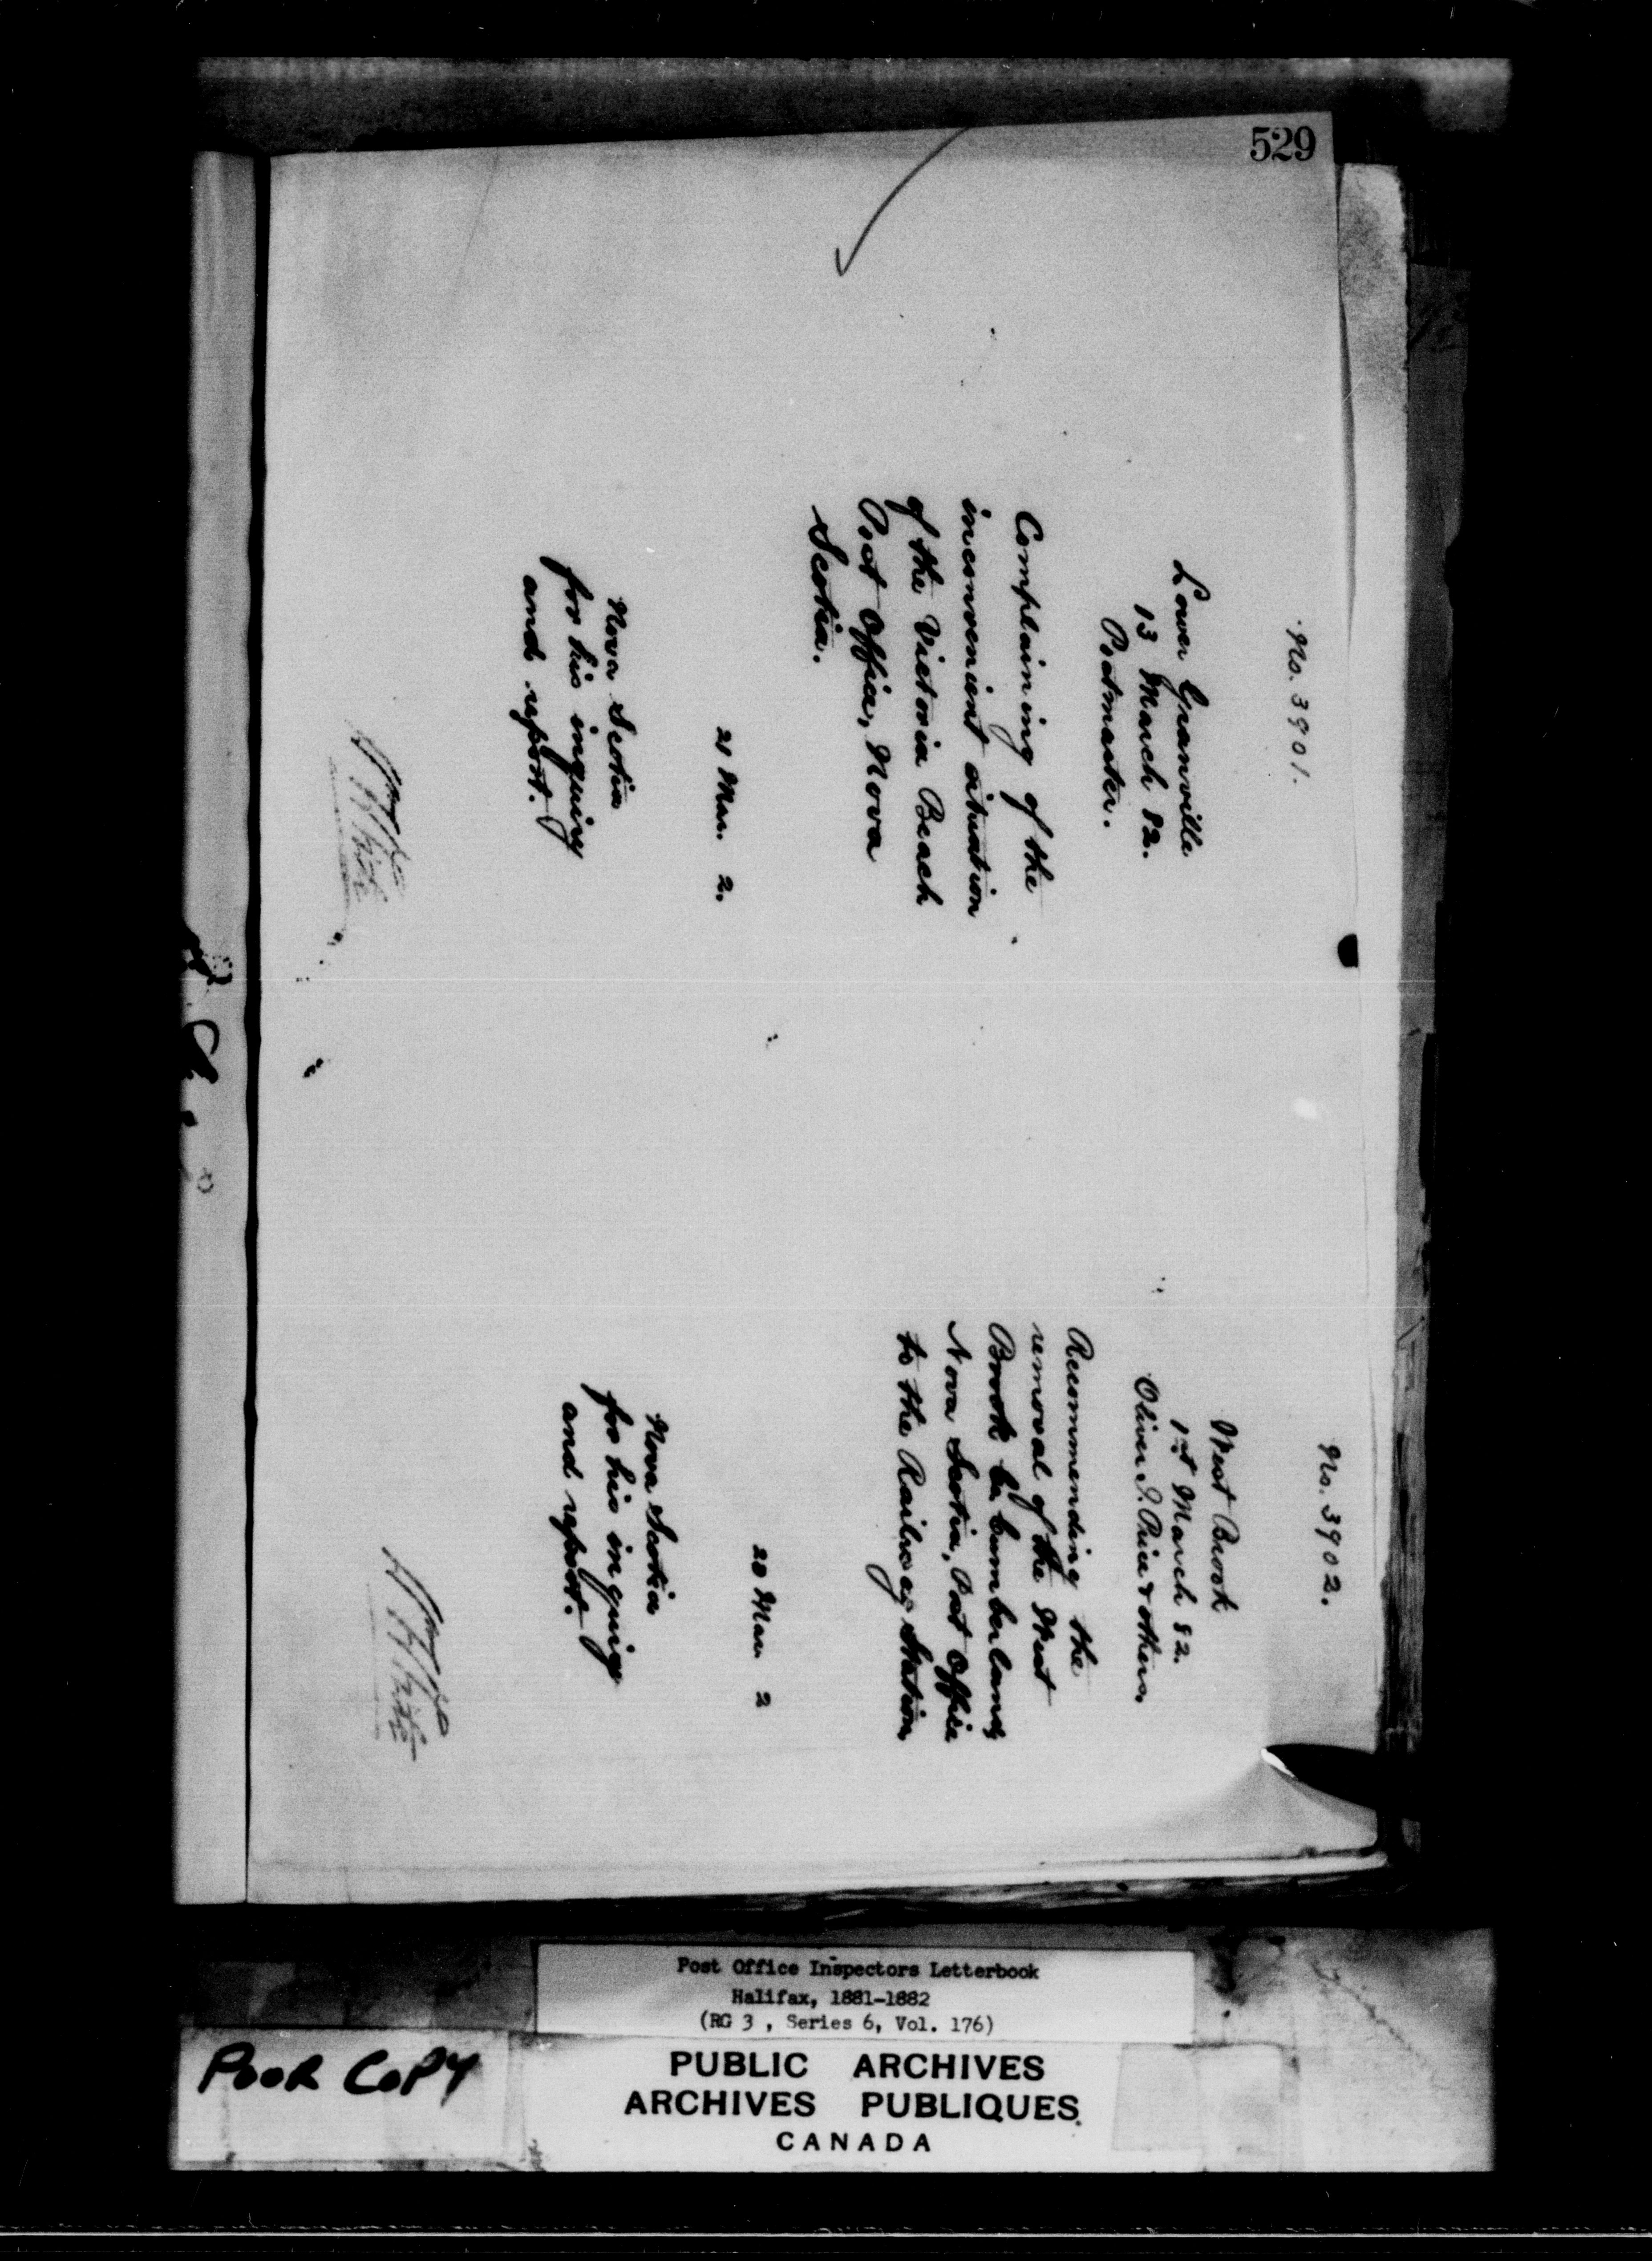 529
No. 3901.
Lower Granville
13 March 82.
Postmaster.
Complaining of the
inconvenient situation
of the Victoria Beach
Post Office, Nova
Scotia.
21 Mar. 2.
Nova Scotia
for his inquiry
and report.
No. 3902.
West Brook
1st March 82.
Oliver I. Price & others.
Recommending the
removal of the West
Brook Co. Cumberland,
Nova Scotia, Post Office
to the Railway Station
20 Mar. 2
Nova Scotia
for his inquiry
and report.
Post Office Inspectors Letterbook
Halifax, 1881-1882
(RG 3 , Series 6, Vol. 176)
POOR COPY
PUBLIC ARCHIVES
ARCHIVES PUBLIQUES
CANADA